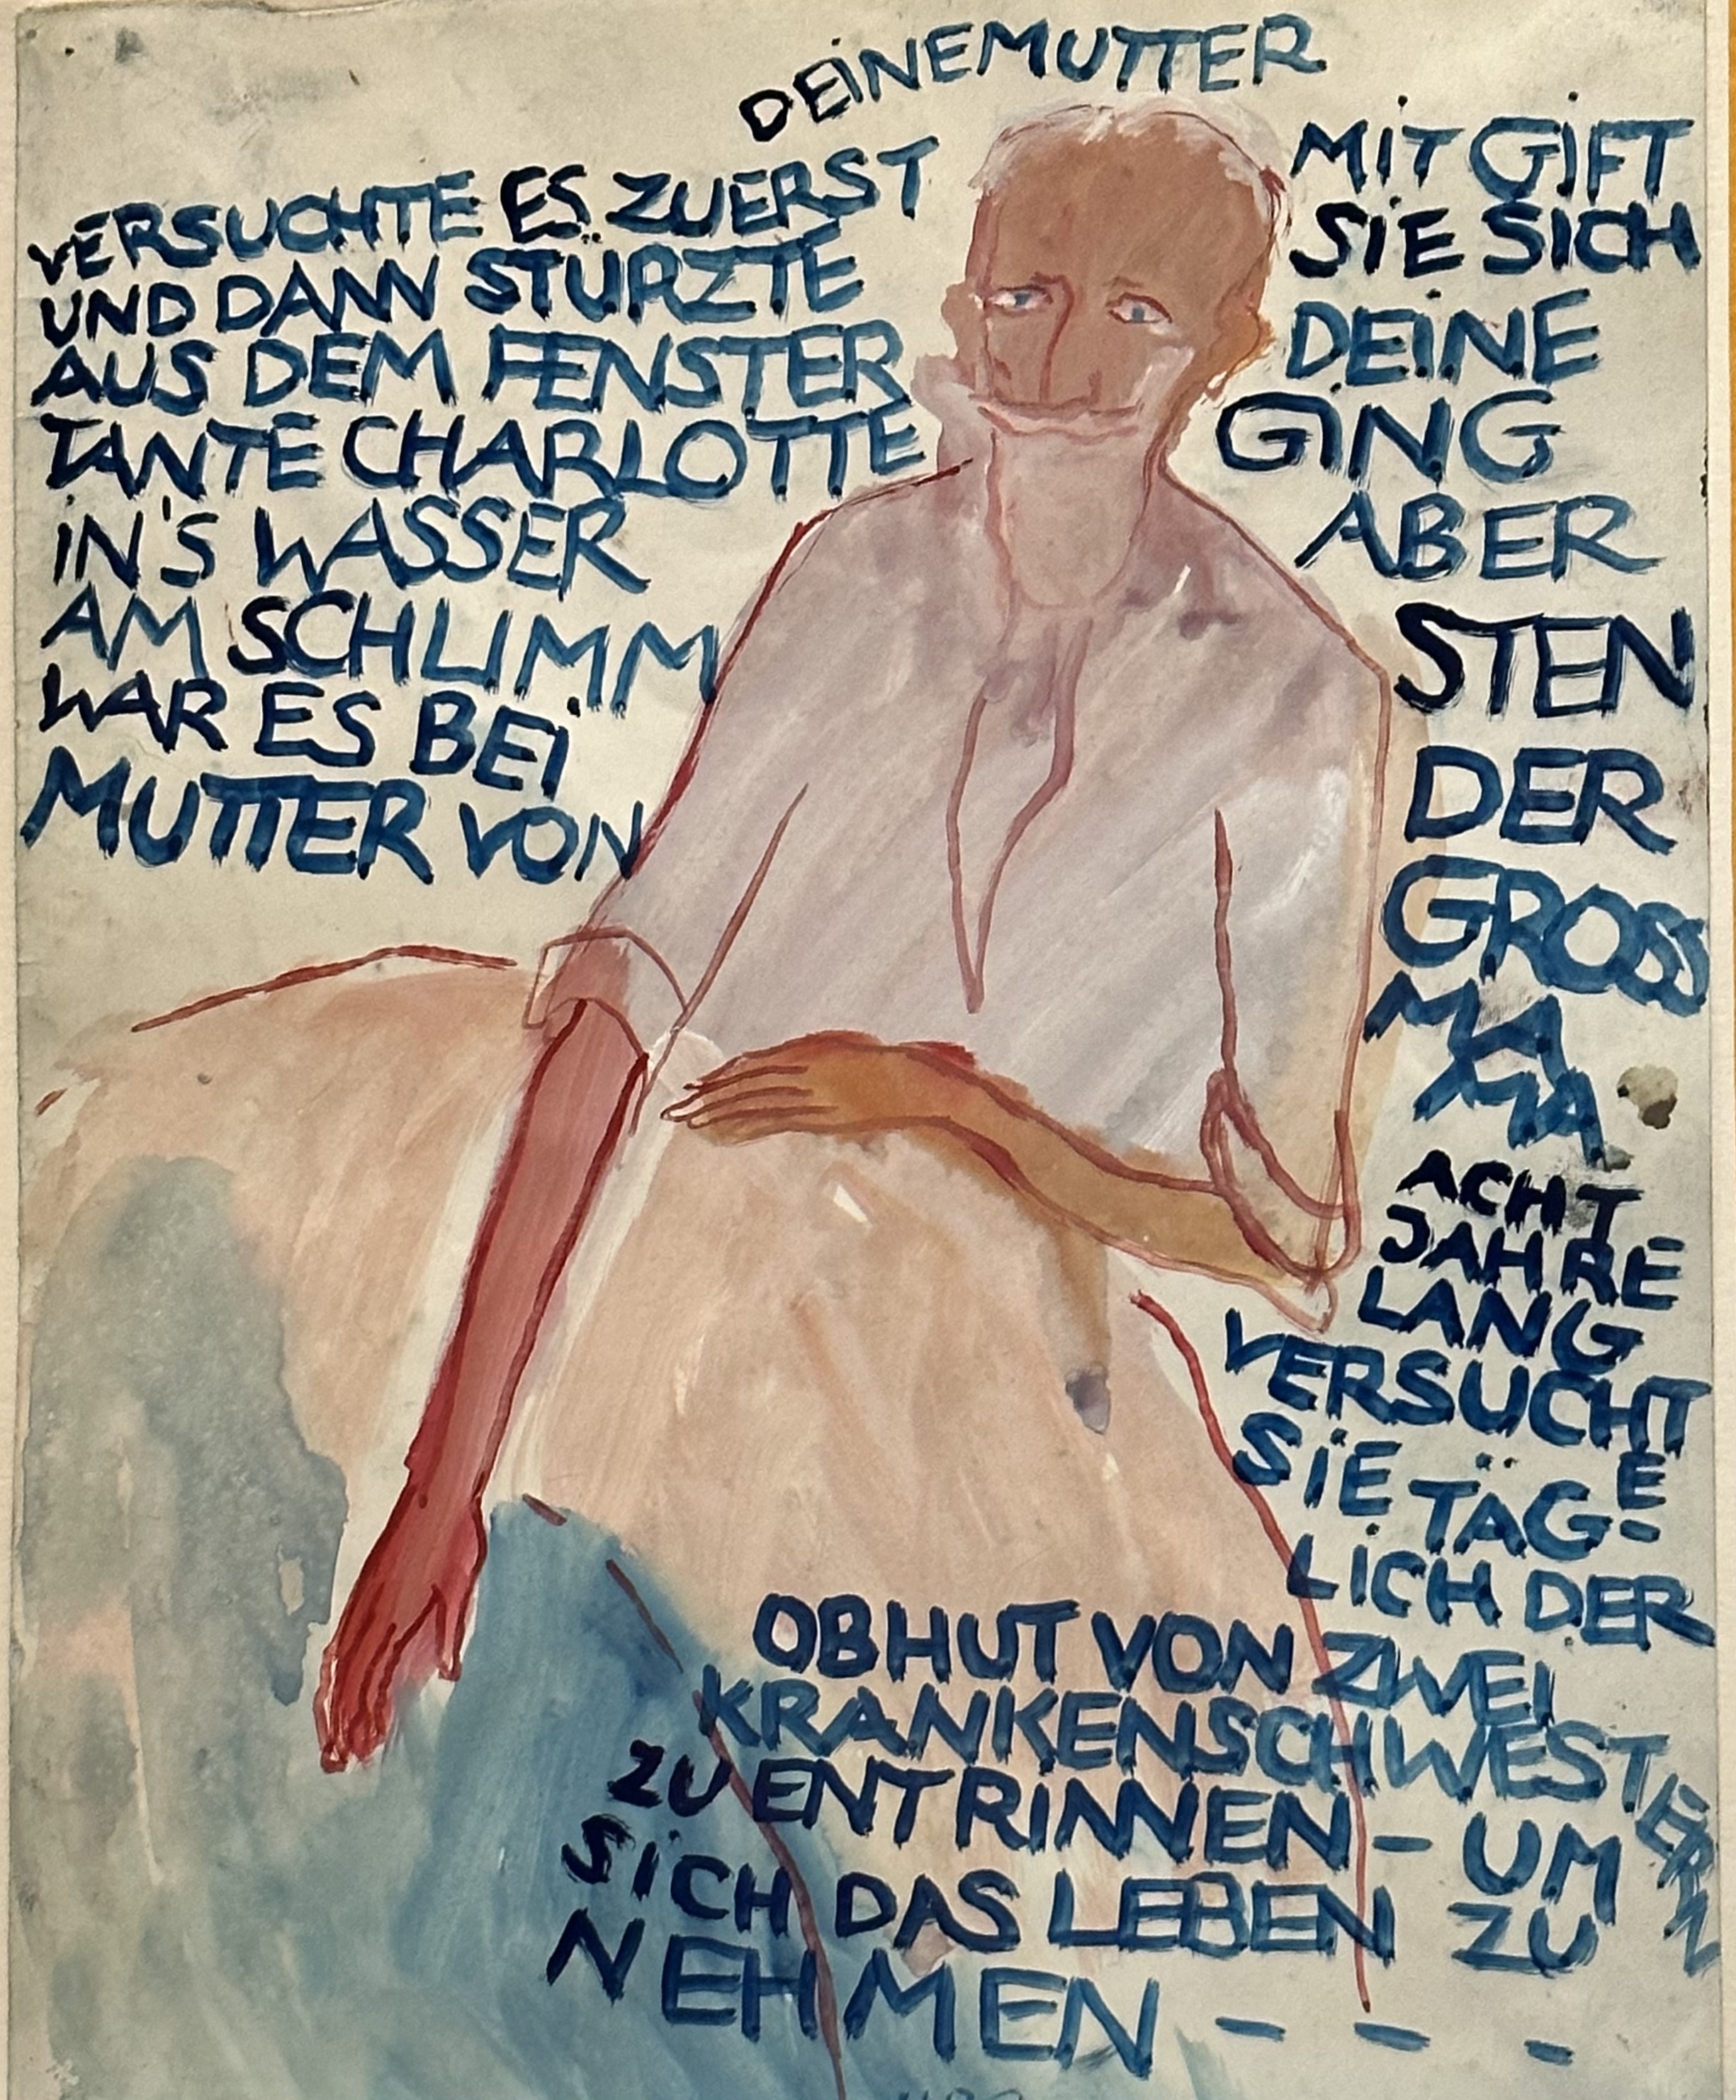 DEINE MUTTER
VERSUCHTE ES ZUERST MIT GIFT
UND DANN STÜRZTE SIE SICH
AUS DEM FENSTER DEINE
TANTE CHARLOTTE GING
IN'S WASSER ABER
AM SCHLIMM STEN
WAR ES BEI DER
MUTTER VON GROSS
MA
MA
ACHT
JAHRE
LANG
VERSUCHTE
SIE TÄG-
LICH DER
OBHUT VON ZWEI
KRANKENSCHWESTERN
ZU ENTRINNEN – UM
SICH DAS LEBEN ZU
NEHMEN – – –